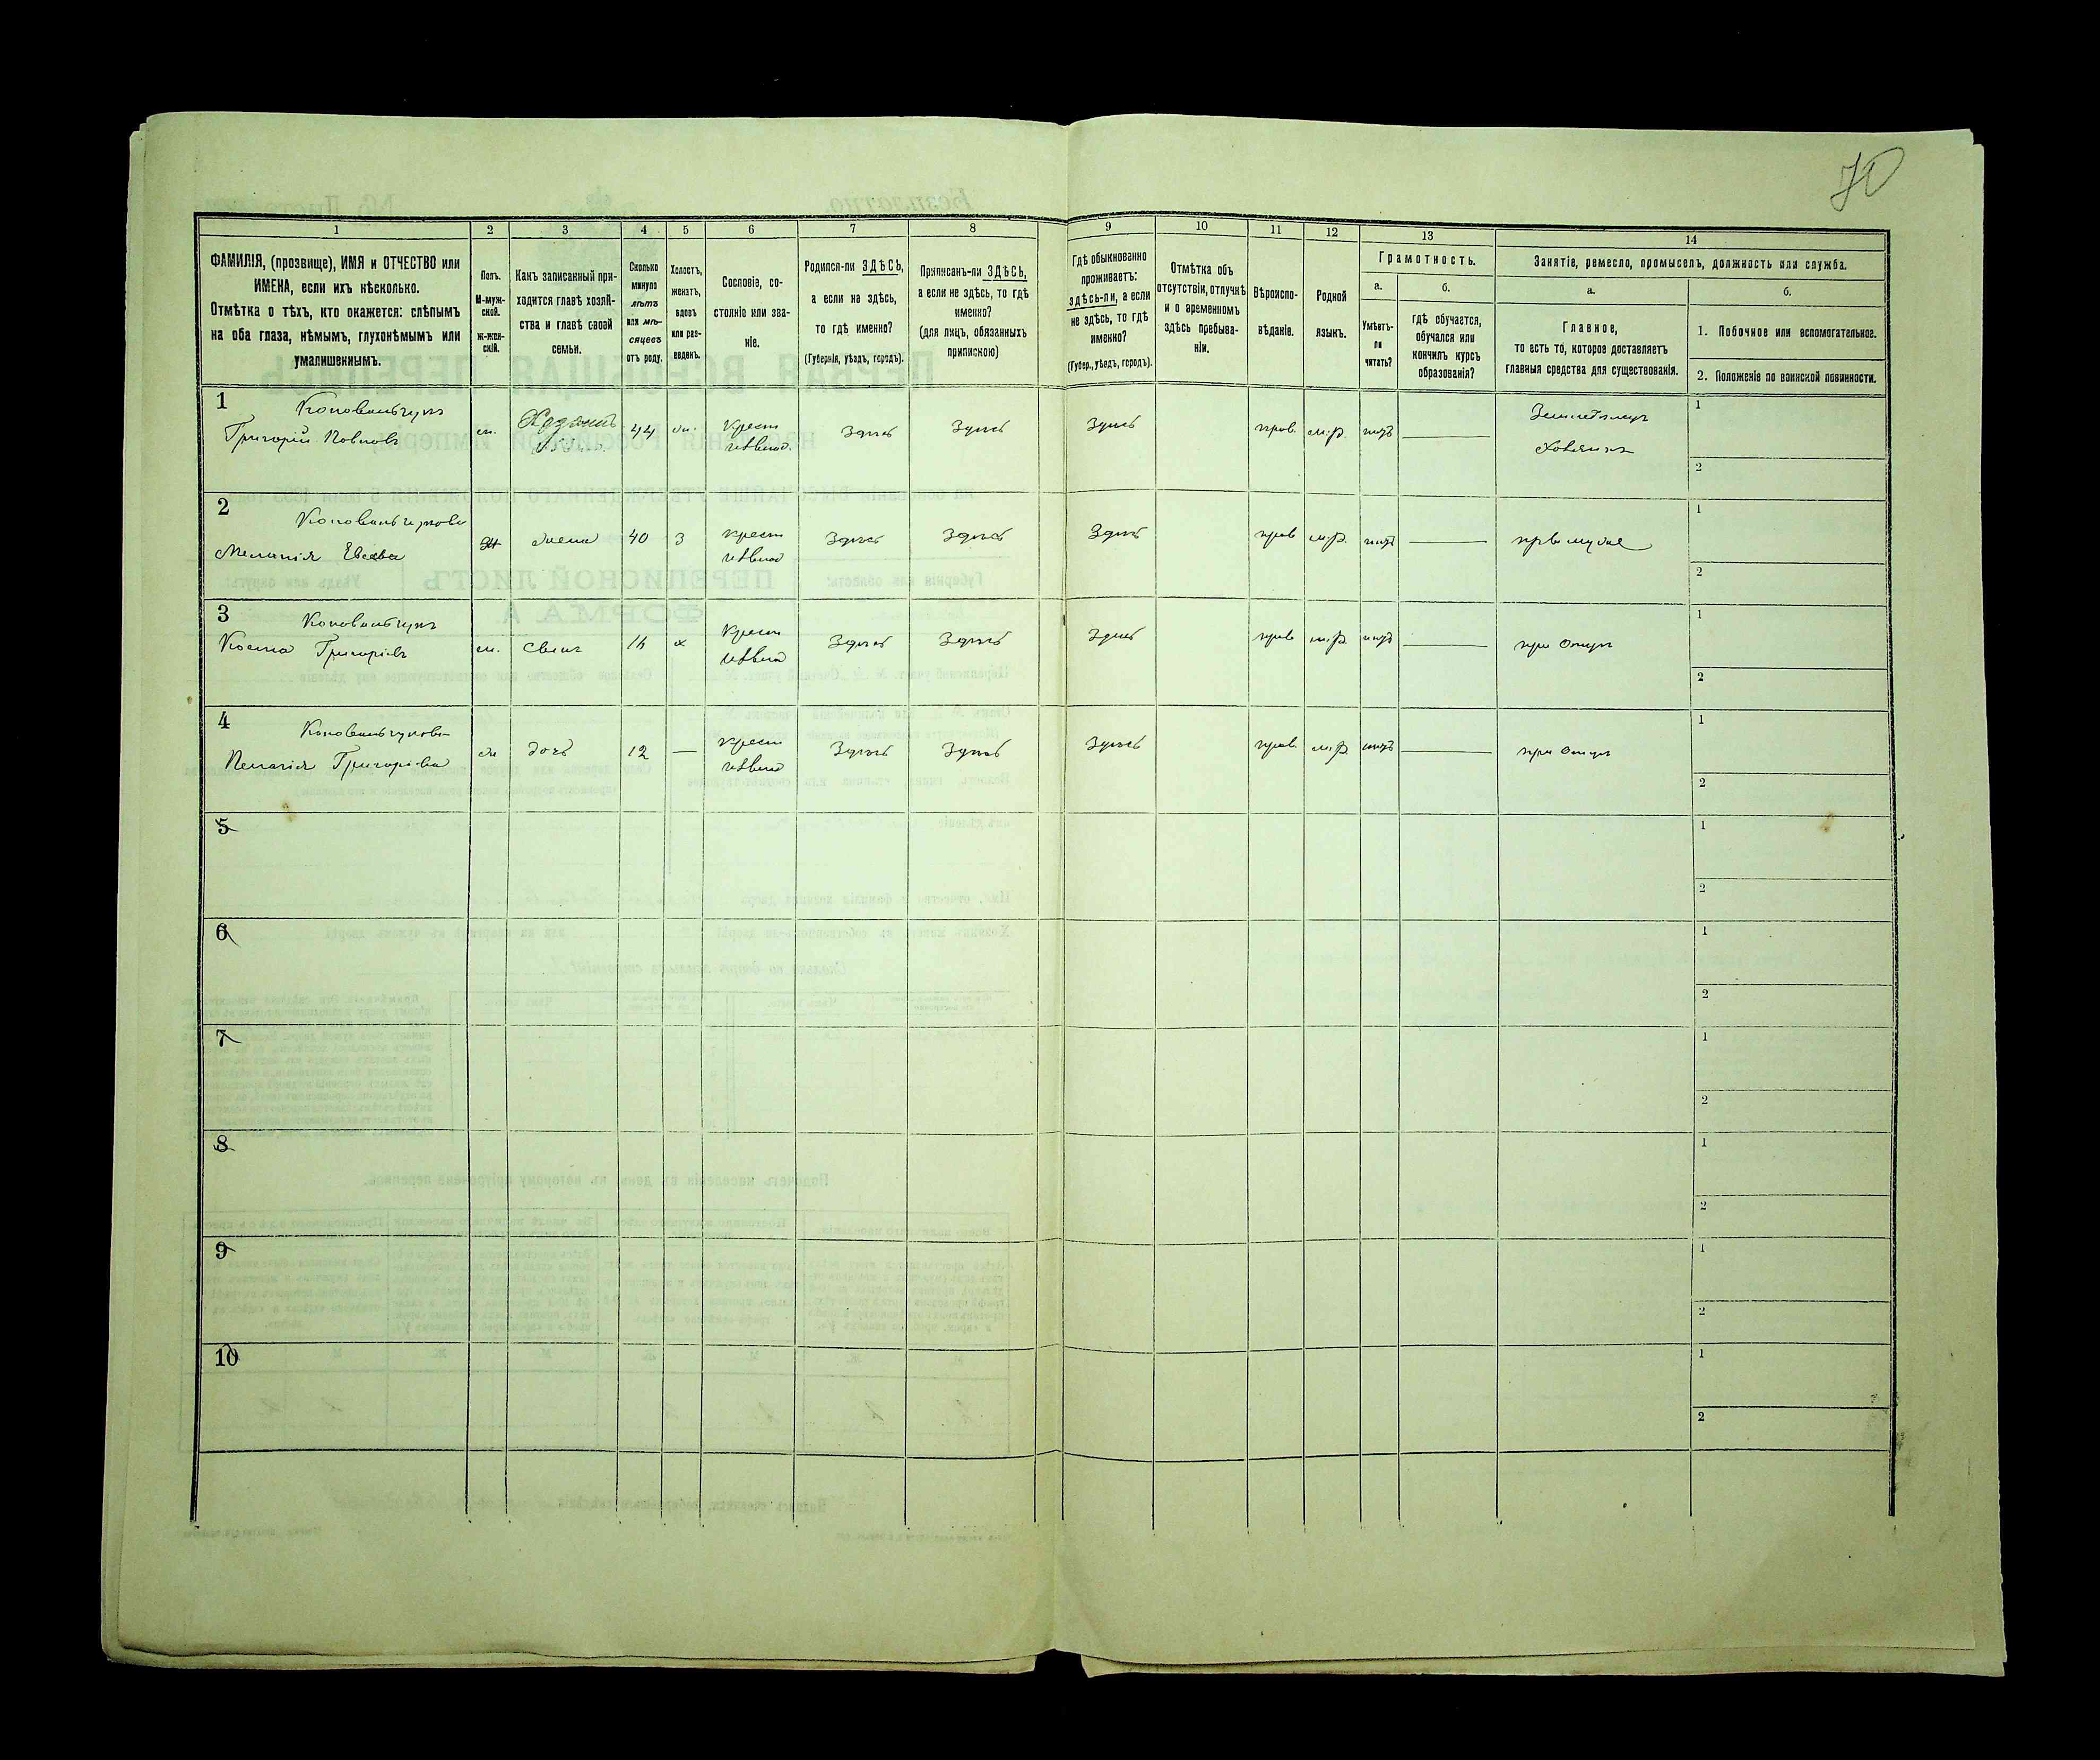 70
1
2
3
4
5
6
7
8
9
10
11
12
13
14
ФАМИЛІЯ, (прозвище), ИМЯ и ОТЧЕСТВО или
ИМЕНА, если ихъ нѣсколько.
Отмѣтка о тѣхъ, кто окажется: слѣпымъ
на оба глаза, нѣмымъ, глухонѣмымъ или
умалишеннымъ.
Полъ.
М-муж-
ской.
ж-жен-
скій.
Какъ записанный при-
ходится главѣ хозяй-
ства и главѣ своей
семьи.
Сколько
минуло
лѣтъ
или мѣ-
сяцевъ
отъ роду.
Холостъ,
женатъ,
вдовъ
или раз-
веденъ.
Сословіе, со-
стояніе или зва-
ніе.
Родился-ли ЗДѢСЬ,
а если не здѣсь,
то гдѣ именно?
(Губернія, уѣздъ, городъ).
Приписанъ-ли ЗДѢСЬ,
а если не здѣсь, то гдѣ
именно?
(для лицъ, обязанныхъ
припискою)
Гдѣ обыкновенно
проживаетъ:
здѣсь-ли, а если
не здѣсь, то гдѣ
именно?
(Губер., уѣздъ, городъ).
Отмѣтка объ
отсутствіи, отлучкѣ
и о временномъ
здѣсь пребыва-
ніи.
Вѣроиспо-
вѣданіе.
Родной
языкъ.
Грамотность.
а.
Умѣетъ-
ли
читать?
б.
гдѣ обучается,
обучался или
кончилъ курсъ
образованія?
Занятіе, ремесло, промыселъ, должность или служба.
а.
Главное,
то есть то, которое доставляетъ
главныя средства для существованія.
б.
1. Побочное или вспомогательное.
2. Положеніе по воинской повинности.
1
Коновальчукъ
Григорій Павловъ
м. 44
Крест
Здѣсь Здѣсь Здѣсь прав. м.р. нѣтъ
Хозяинъ
1
2
2
Коновальчукова
Меланія
Ж жена 40 З
крест
Здѣсь Здѣсь Здѣсь прав м.р. нѣтъ
при мужѣ
1
2
3
Коновальчукъ
Косма Григоріевъ
м. сынъ х
Крест
Здѣсь Здѣсь Здѣсь прав м.р. нѣтъ при Отцѣ
1
2
4
Коновальчукова
Пелагія Григоріева
дочь 12 —
крест
Здѣсь Здѣсь Здѣсь прав. м.р нѣтъ при Отцѣ
1
2
5
1
2
6
1
2
7
1
2
8
1
2
9
1
2
10
1
2